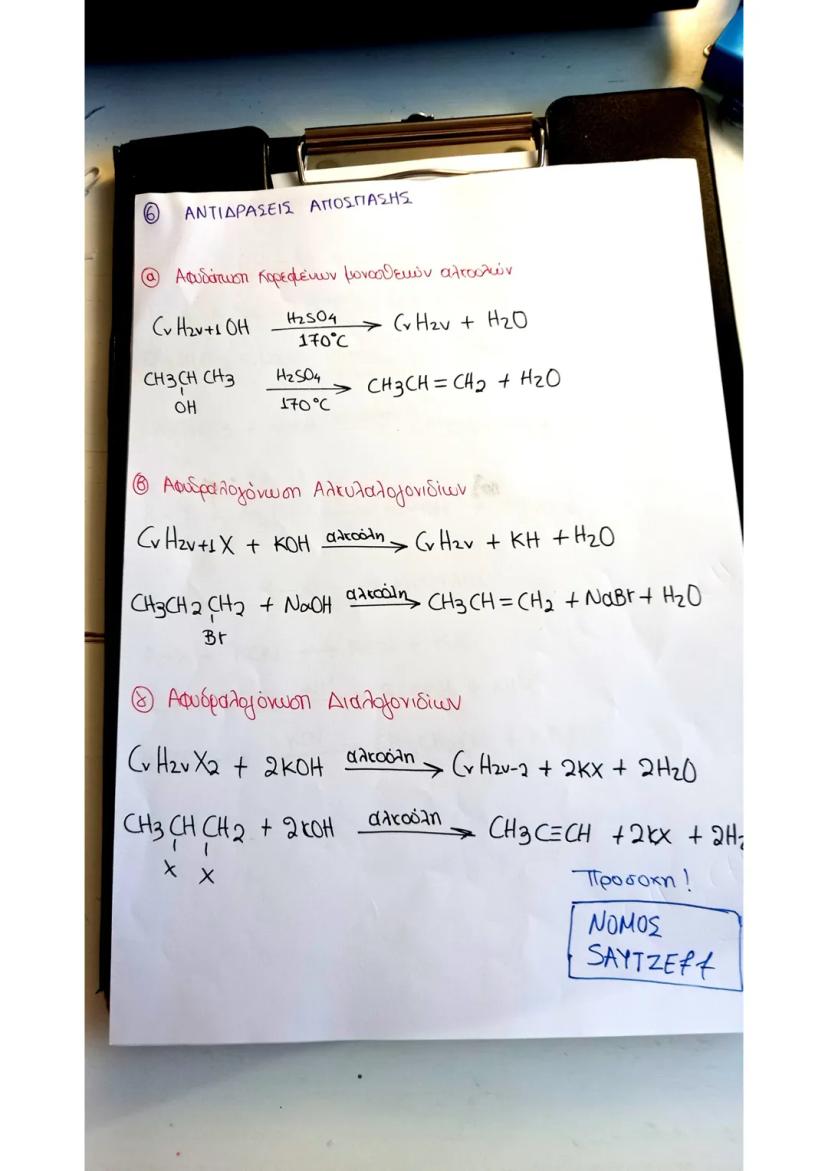 ⑥ ΑΝΤΙΔΡΑΣΕΙΣ ΑΠΟΣΠΑΣΗΣ
ⓐ Αφυδάτωση κορεσμένων μονοσθενών αλκοολών
CνH2ν+1OH H2SO4 170°C → CνH2ν + H2O
CH3CHCH3 H2SO4 170°C → CH3CH=CH2 + H2O
OH
ⓑ Αφυδραλογόνωση Αλκυλαλογονιδίων
CνH2ν+1X + KOH αλκοόλη → CνH2ν + KH + H2O
CH3CH2CH2 + NaOH αλκοόλη → CH3CH=CH2 + NaBr + H2O
Br
ⓧ Αφυδραλογόνωση Διαλογονιδίων
CνH2νX2 + 2KOH αλκοόλη → CνH2ν-2 + 2KX + 2H2O
CH3CHCH2 + 2KOH αλκοόλη → CH3C≡CH + 2KX + 2H2
X X
Προσοχη!
ΝΟΜΟΣ
SAYTZEFF